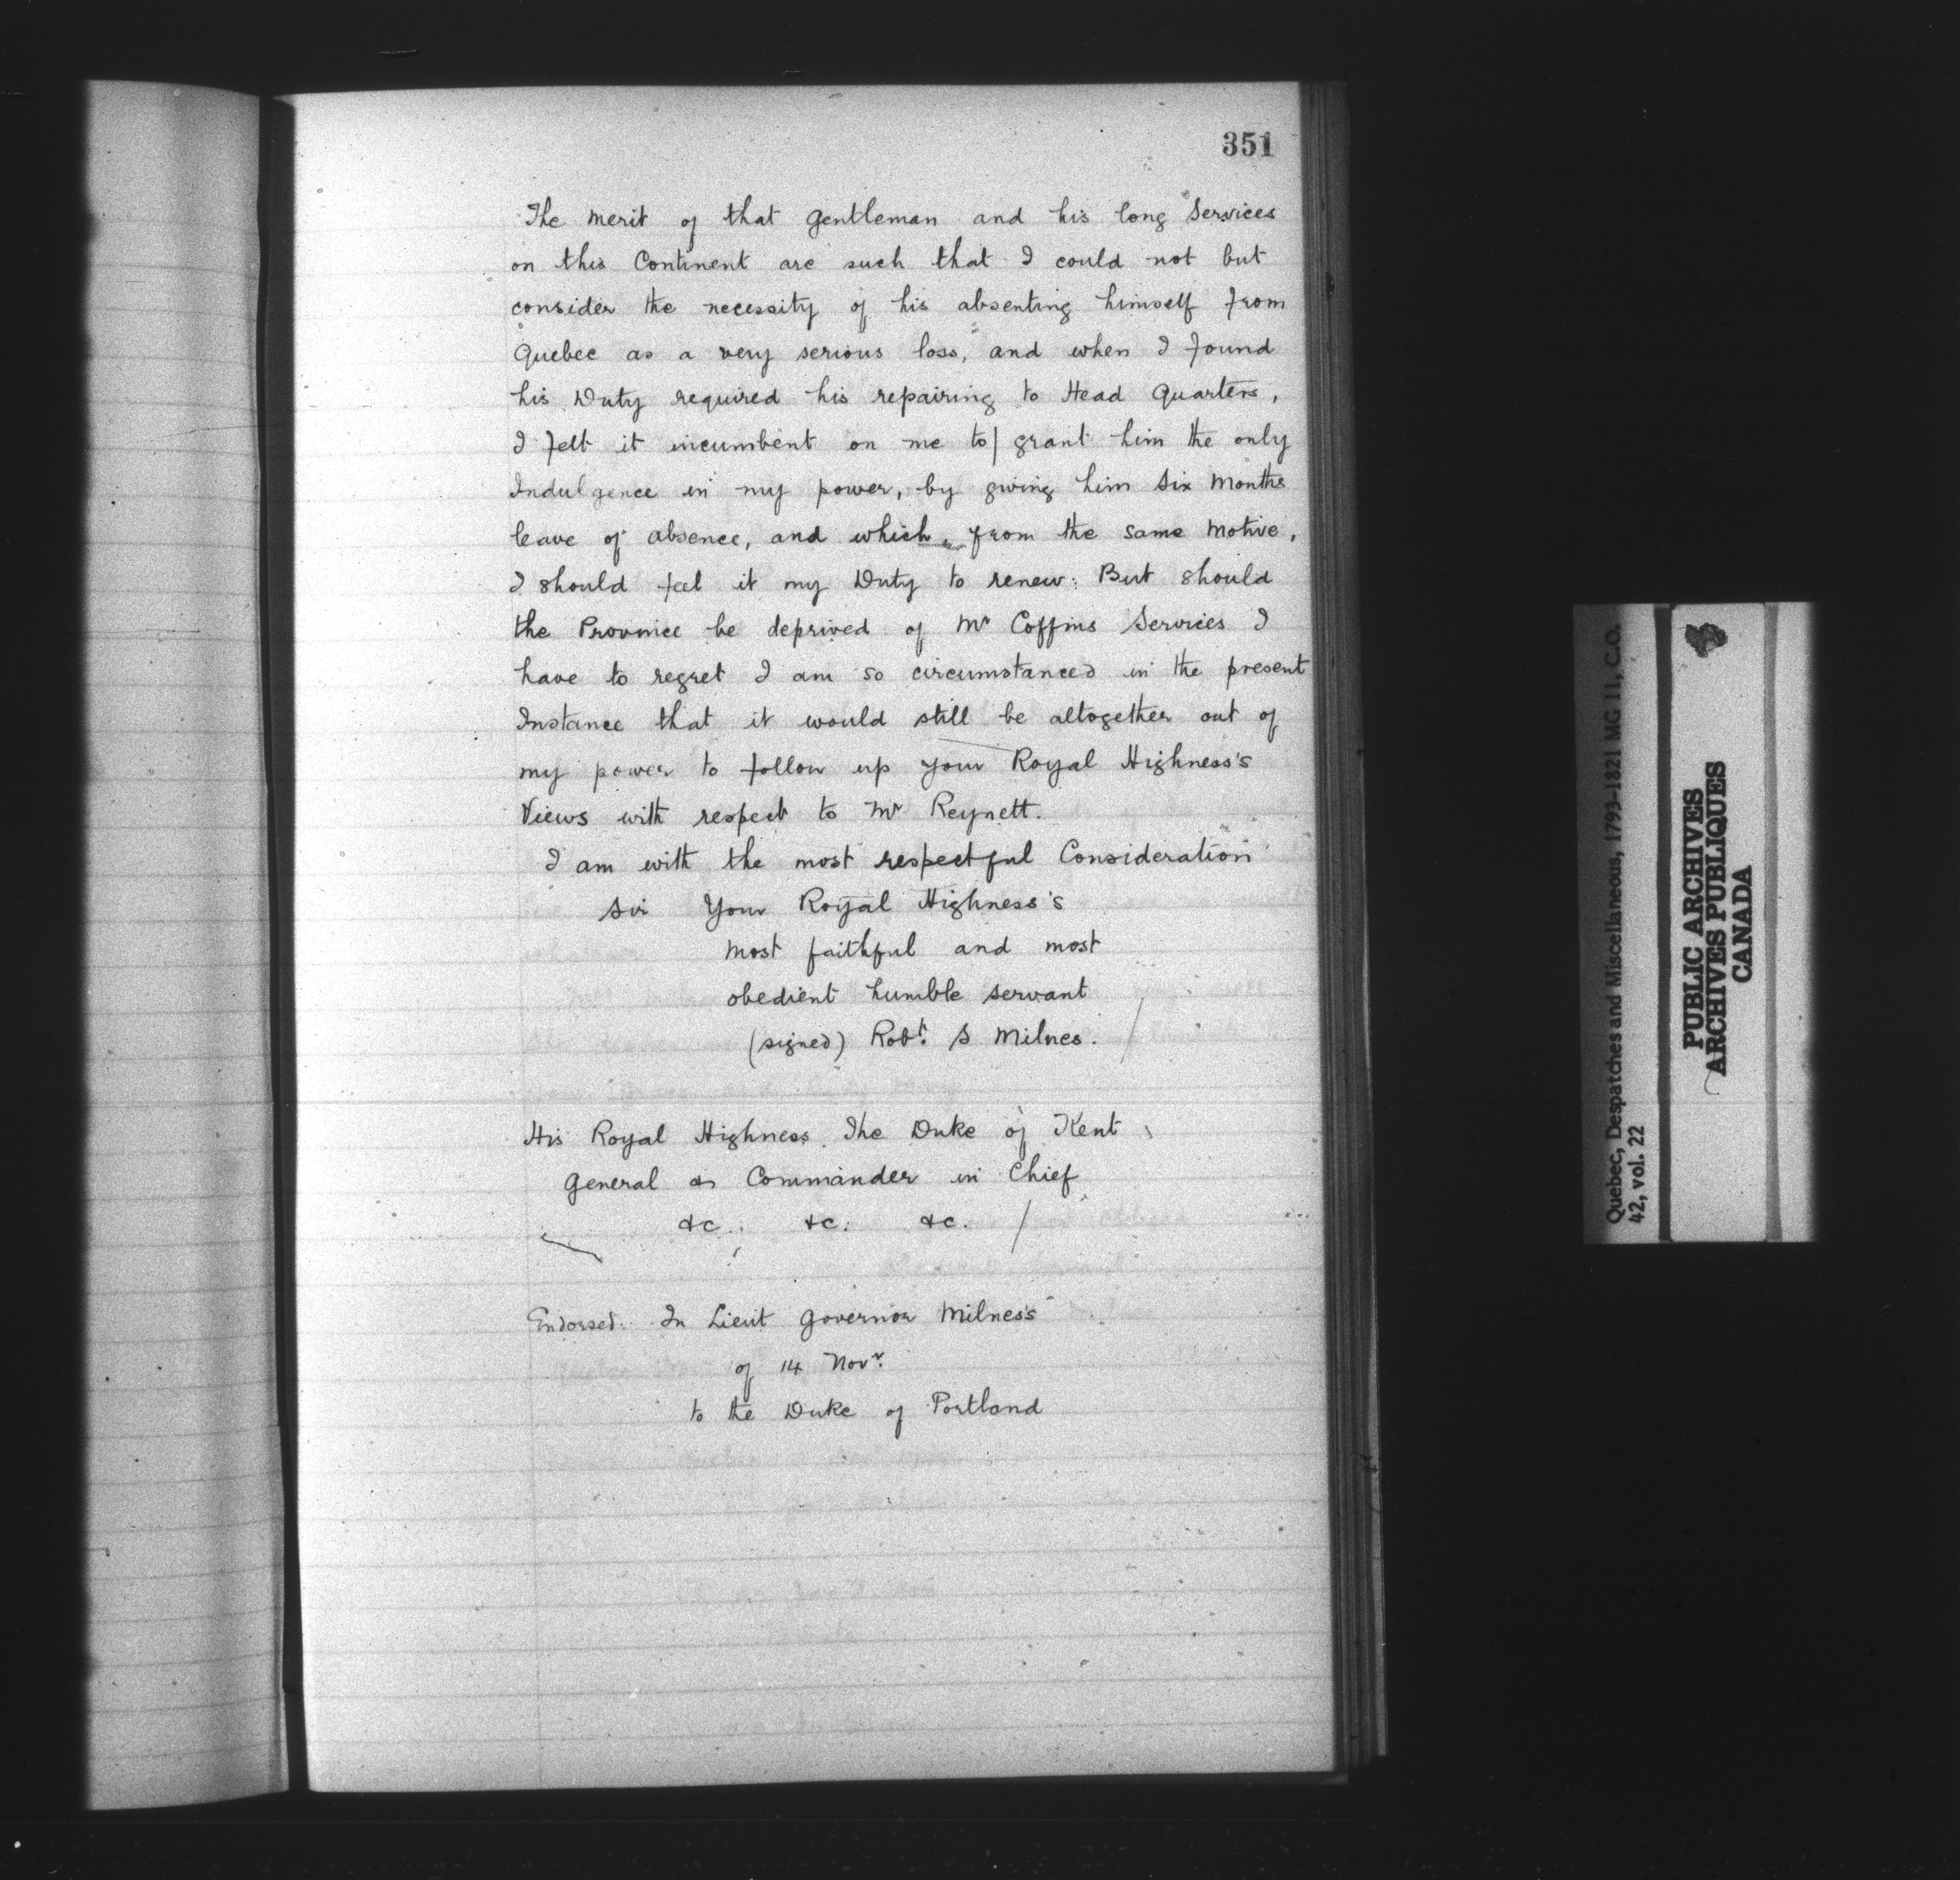 351
The merit of that Gentleman and his long Services
on this Continent are such that I could not but
consider the necessity of his absenting himself from
Quebec as a very serious loss, and when I found
his Duty required his repairing to Head Quarters,
I felt it incumbent on me to grant him the only
Indulgence in my power, by giving him Six Months
leave of absence, and which, from the same Motive,
I should feel it my Duty to renew: But should
the Province be deprived of Mr Coffins Services I
have to regret I am so circumstanced in the present
Instance that it would still be altogether out of
my power to follow up your Royal Highness's
Views with respect to Mr Reynett.
I am with the most respectful Consideration
Sir Your Royal Highness's
most faithful and most
obedient humble servant
(signed) Robt. S Milnes.
His Royal Highness The Duke of Kent
General & Commander in Chief
&c. &c. &c.
Endorsed. In Lieut Governor Milnes's
of 14 Novr.
to the Duke of Portland
Quebec, Despatches and Miscellaneous, 1793-1821 MG 11, C.O.
42, vol. 22
PUBLIC ARCHIVES
ARCHIVES PUBLIQUES
CANADA